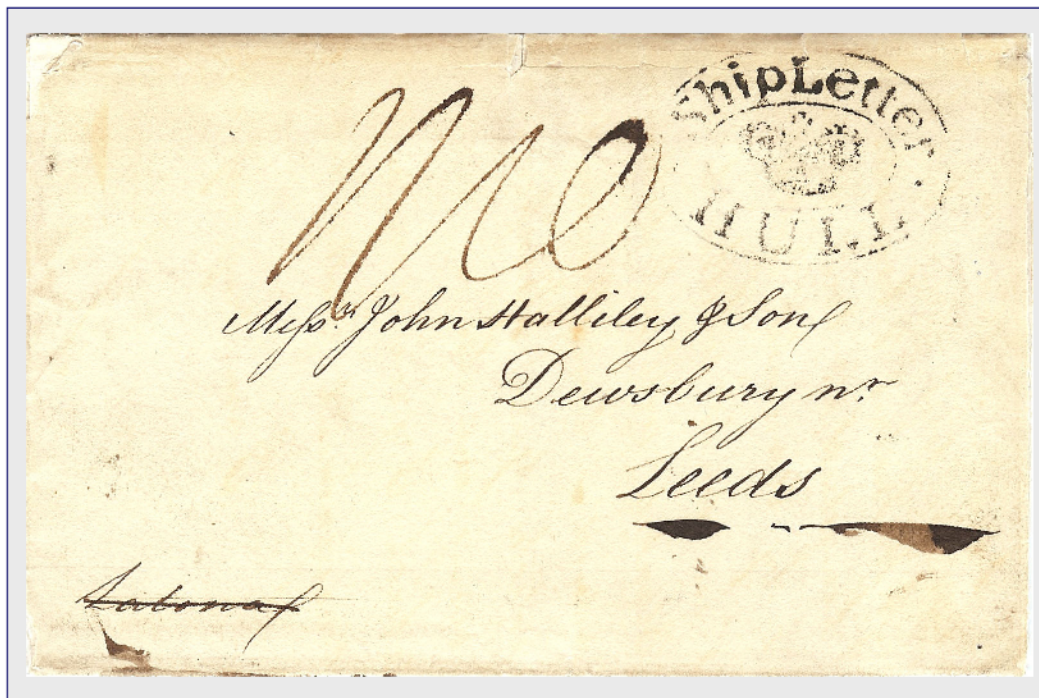 Ship Letter
HULL
Messrs. John Halliley & Son
Dewsbury nr.
Leeds
Latona